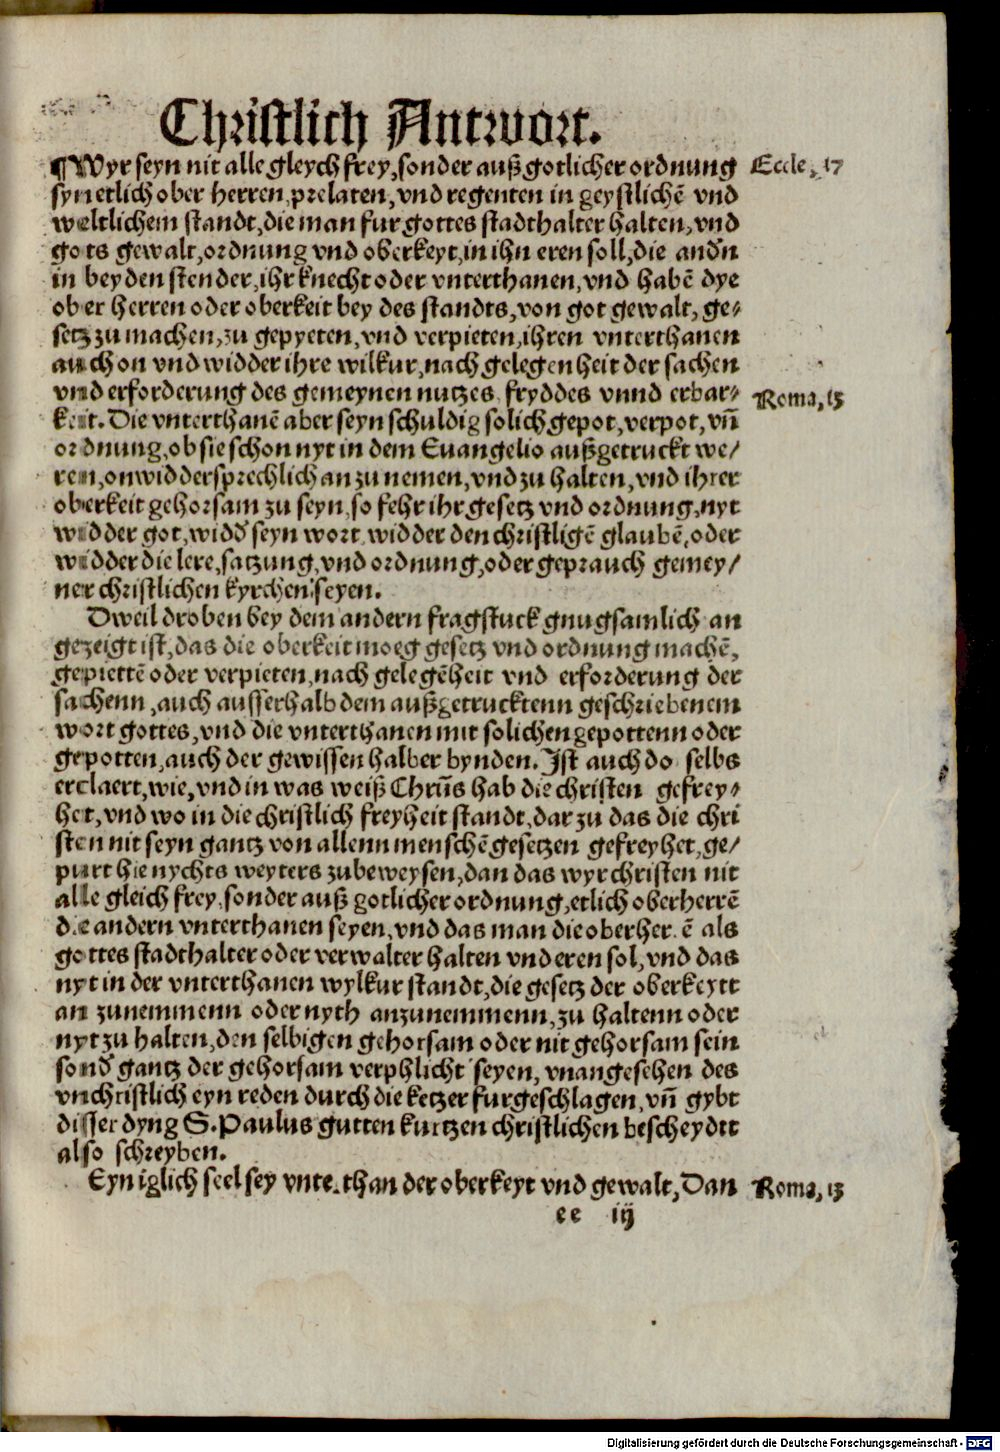 Christlich Antwort.
¶Wyr seyn nit alle gleych frey, sonder auß gotlicher ordnung
Eccle, 17
syn etlich ober herren, prelaten, vnd regenten in geystlichē vnd
weltlichem standt, die man fur gottes stadthalter halten, vnd
gots gewalt, ordnung vnd oberkeyt, in ihn eren soll, die and'n
in beyden stender, ihr knecht oder vnterthanen, vnd habē dye
ober herren oder oberkeit beydes standts, von got gewalt, ge⸗
setz zu machen, zu gepyeten, vnd verpieten, ihren vnterthanen
auch on vnd widder ihre wilkur, nach gelegenheit der sachen
vnd erforderung des gemeynen nutzes fryddes vnnd erbar⸗
Roma, 13
keit. Die vnterthanē aber seyn schuldig solich gepot, verpot, vñ
ordnung, ob sie schon nyt in dem Euangelio außgetruckt we/
ren, onwiddersprechlich an zu nemen, vnd zu halten, vnd ihrer
oberkeit gehorsam zu seyn, so fehr ihr gesetz vnd ordnung, nyt
widder got, widd' seyn wort, widder den christligē glaubē, oder
widder die lere, satzung, vnd ordnung, oder geprauch gemey/
ner christlichen kyrchen seyen.
Dweil droben bey dem andern fragstuck gnugsamlich an
gezeigt ist, das die oberkeit moeg gesetz vnd ordnung machē,
gepiettē oder verpieten, nach gelegēheit vnd erforderung der
sachenn, auch ausserhalb dem außgetrucktenn geschriebenem
wort gottes, vnd die vnterthanen mit solichen gepottenn oder
gepotten, auch der gewissen halber bynden. Ist auch do selbs
erclaert, wie, vnd in was weiß Chrūs hab die christen gefrey⸗
het, vnd wo in die christlich freyheit standt, dar zu das die chri
sten nit seyn gantz von allenn menschē gesetzen gefreyhet, ge/
purt hie nychts weyters zubeweysen, dan das wyr christen nit
alle gleich frey, sonder auß gotlicher ordnung, etlich oberherrē
die andern vnterthanen seyen, vnd das man die oberher ē als
gottes stadthalter oder verwalter halten vnd eren sol, vnd das
nyt in der vnterthanen wylkur standt, die gesetz der oberkeytt
an zunemmenn oder nyth anzunemmenn, zu haltenn oder
nyt zu halten, den selbigen gehorsam oder nit gehorsam sein
sond' gantz der gehorsam verphlicht seyen, vnangesehen des
vnchristlich eyn reden durch die ketzer furgeschlagen, vñ gybt
disser dyng S. Paulus gutten kurtzen christlichen bescheydtt
also schreyben.
Eyn iglich seel sey vnterthan der oberkeyt vnd gewalt, Dan
Roma, 13
ee iij
Digitalisierung gefördert durch die Deutsche Forschungsgemeinschaft - DFG